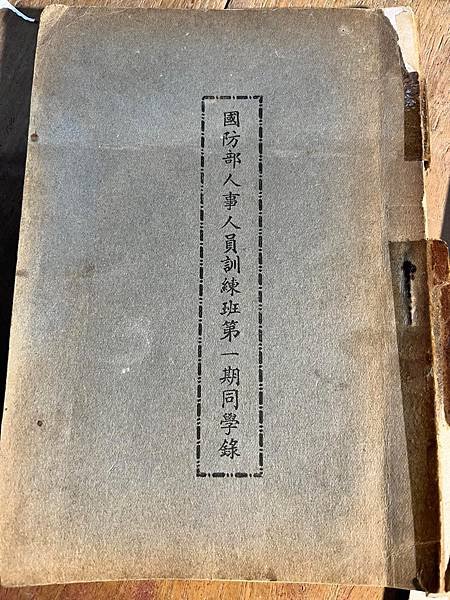 國防部人事人員訓練班第一期同學錄